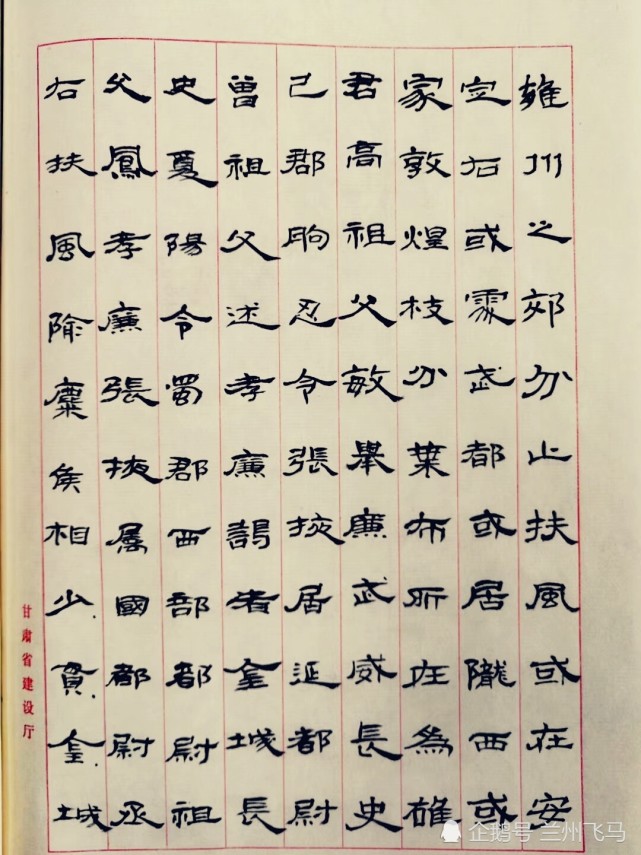 雍州之郊分止扶風或在安
定右或處武都或居隴西或
家敦煌枝分葉布所在為雄
君高祖父敏舉廉武威長史
巴郡朐忍令張掖居延都尉
曾祖父述孝廉謁者金城長
史夏陽令蜀郡西部都尉祖
父鳳孝廉張掖屬國都尉丞
右扶風隃麋侯相少貧金城
甘肃省建设厅
企鹅号 兰州飞马